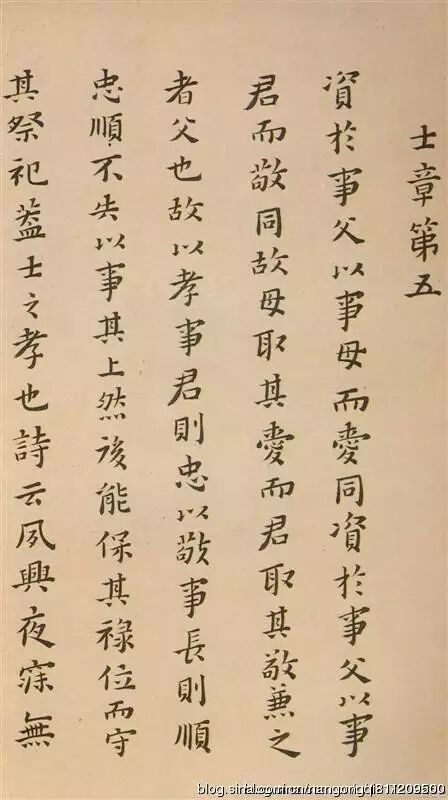 士章第五
資於事父以事母而愛同資於事父以事
君而敬同故母取其愛而君取其敬兼之
者父也故以孝事君則忠以敬事長則順
忠順不失以事其上然後能保其祿位而守
其祭祀蓋士之孝也詩云夙興夜寐無